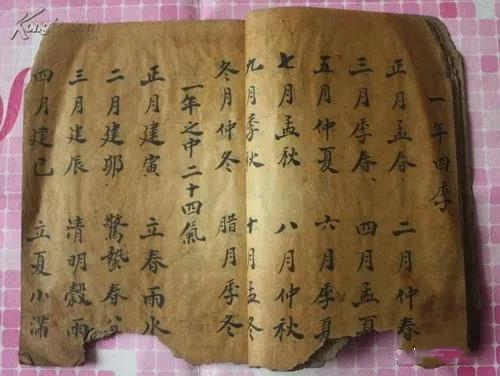 一年四季
正月孟春 二月仲春
三月季春 四月孟夏
五月仲夏 六月季夏
七月孟秋 八月仲秋
九月季秋 十月孟冬
冬月仲冬 腊月季冬
一年之中二十四氣
正月建寅 立春雨水
二月建卯 驚蟄春分
三月建辰 清明穀雨
四月建巳 立夏小滿